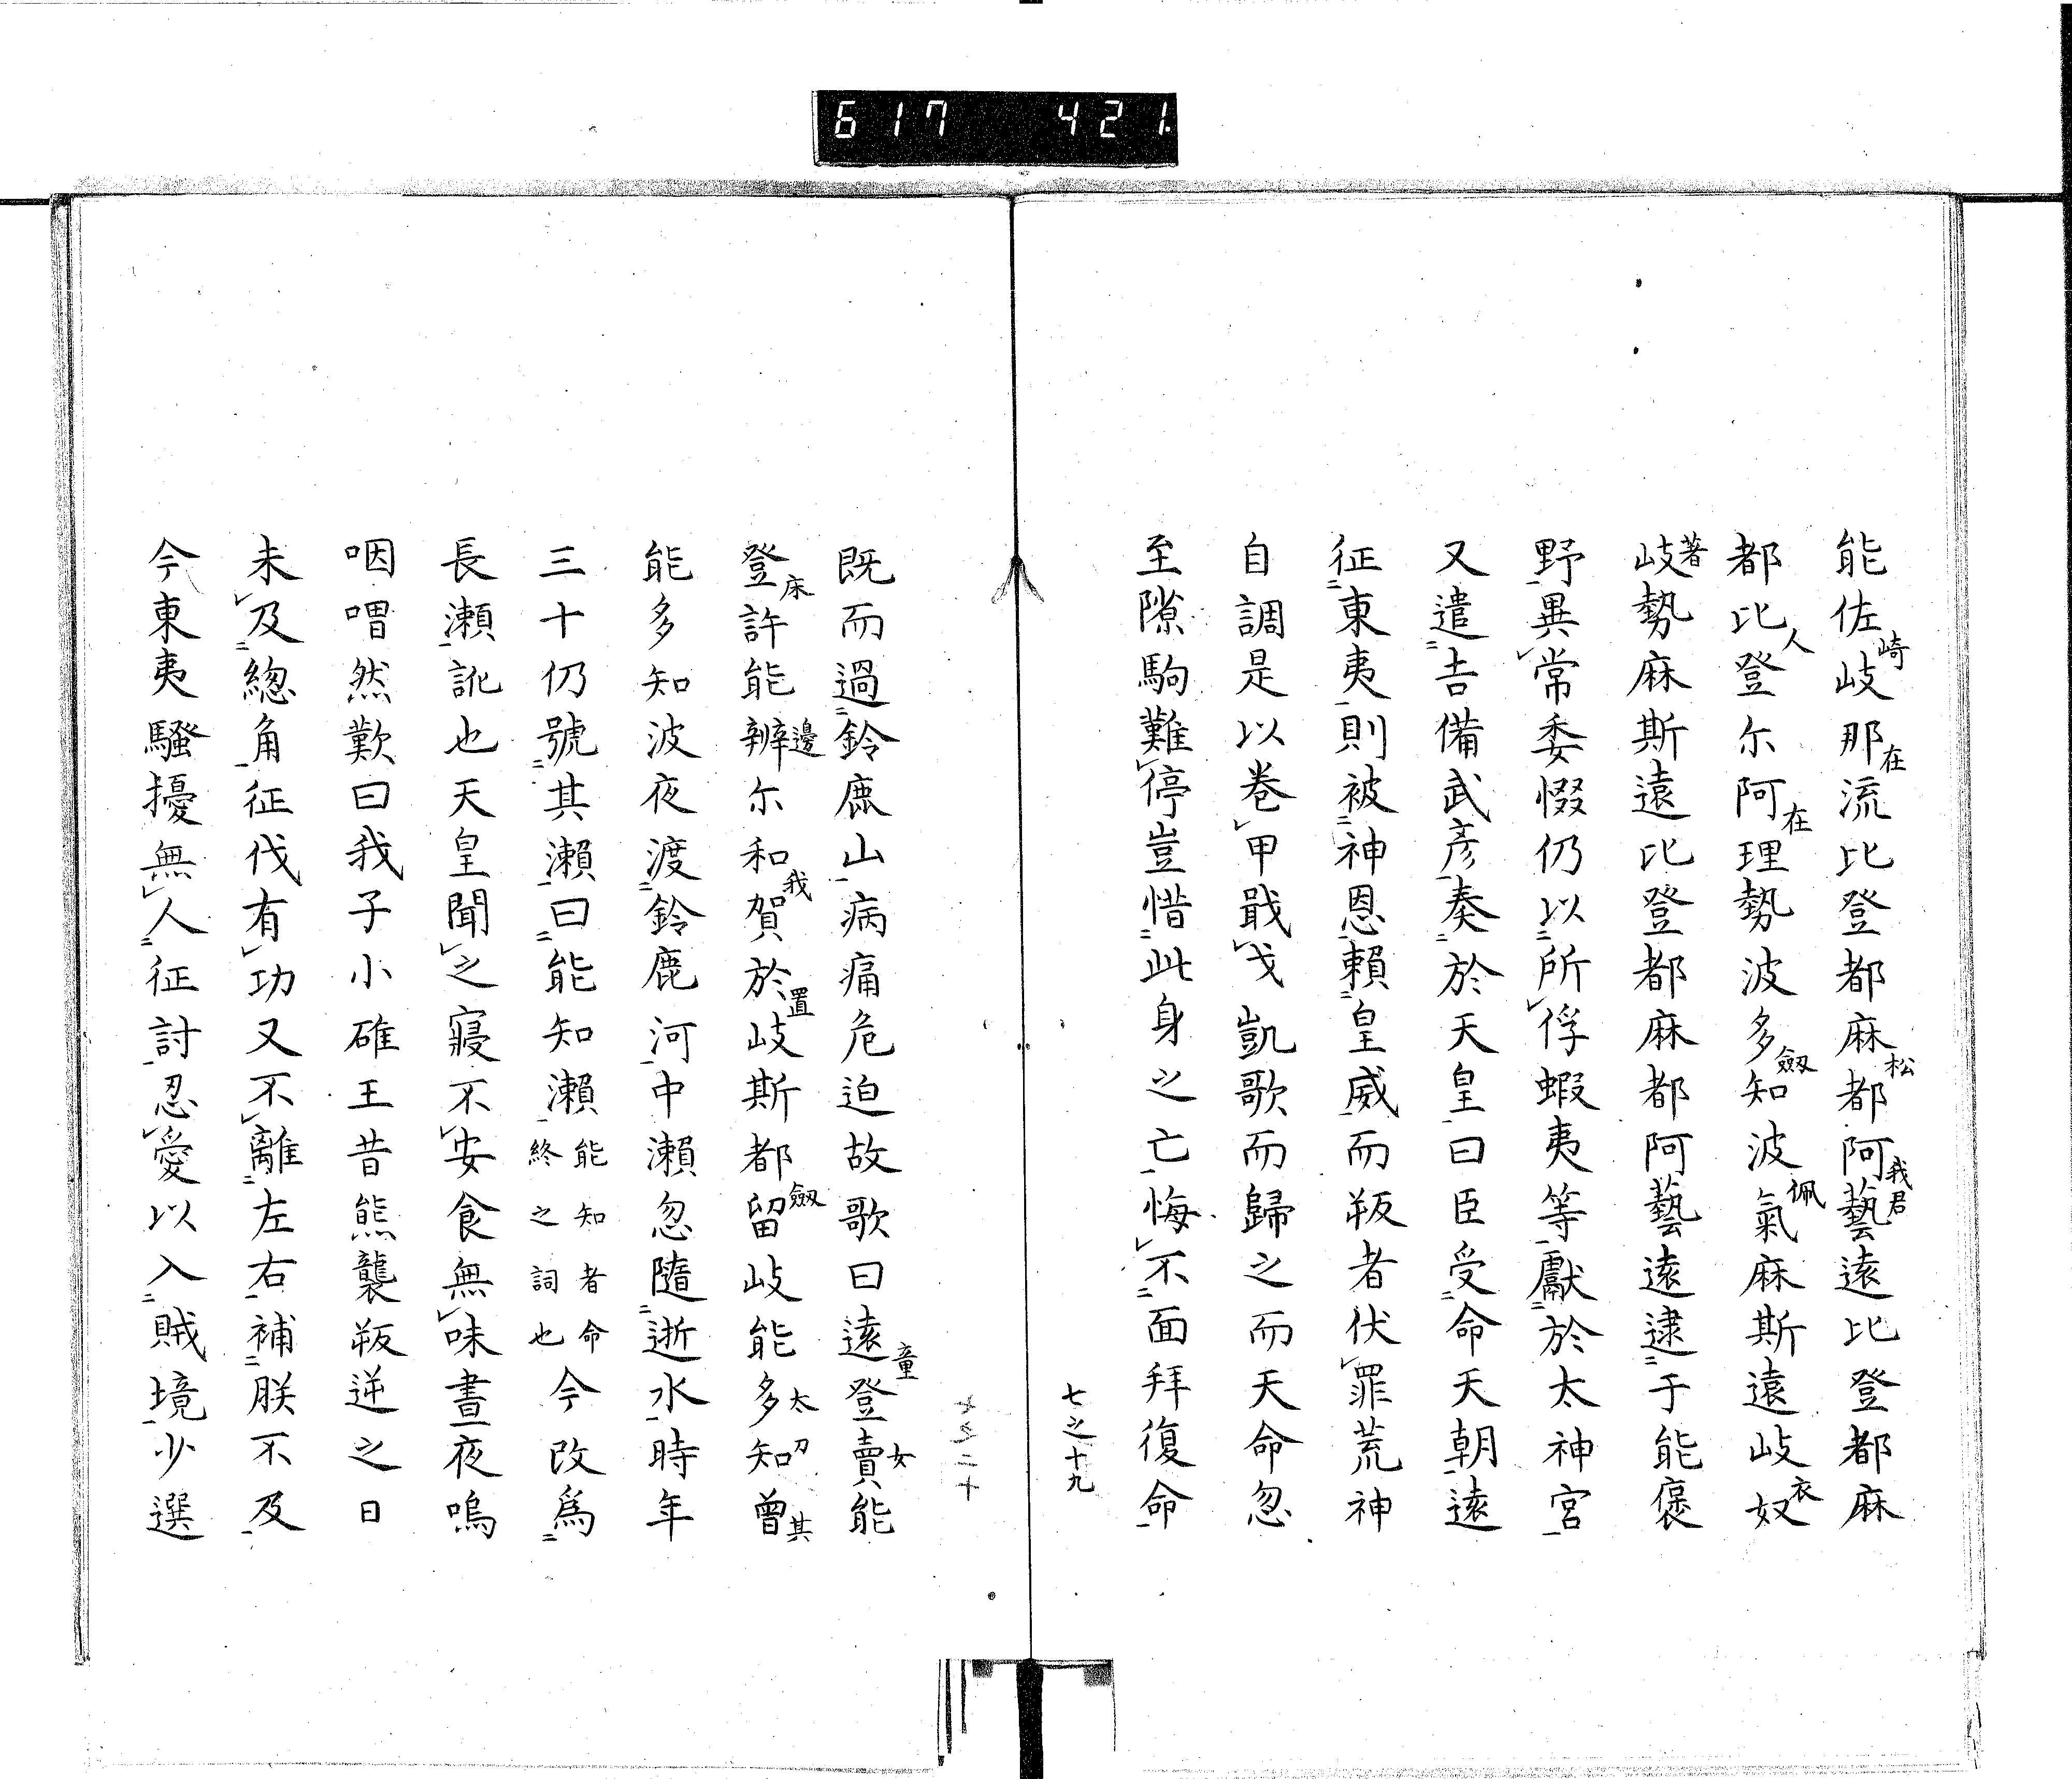 617 421
能佐岐那流比登都麻都阿藝遠比登都麻
崎 在 松 我君
都比登尓阿理勢波多知波氣麻斯遠岐奴
人 在 劔 佩 衣
岐勢麻斯遠比登都麻都阿藝遠逮于能褒
著
野異常委惙仍以所俘蝦夷等獻於太神宮
又遣吉備武彦奏於天皇曰臣受命天朝遠
征東夷則被神恩賴皇威而叛者伏罪荒神
自調是以卷甲戢戈凱歌而歸之而天命忽
至隙駒難停豈惜此身之亡悔不面拜復命
七之十九
七之二十
既而過鈴鹿山病痛危迫故歌曰遠登賣能
童 女
登許能辨尓和賀於岐斯都留岐能多知曽
床 邊 我 置 劔 太 刀 其
能多知波夜渡鈴鹿河中瀬忽隨逝水時年
三十仍號其瀬曰能知瀬
能知者命
終之詞也
今改爲
長瀬訛也天皇聞之寢不安食無味晝夜鳴
咽喟然歎曰我子小碓王昔熊襲叛逆之日
未及總角征伐有功又不離左右補朕不及
今東夷騷擾無人征討忍愛以入賊境少選